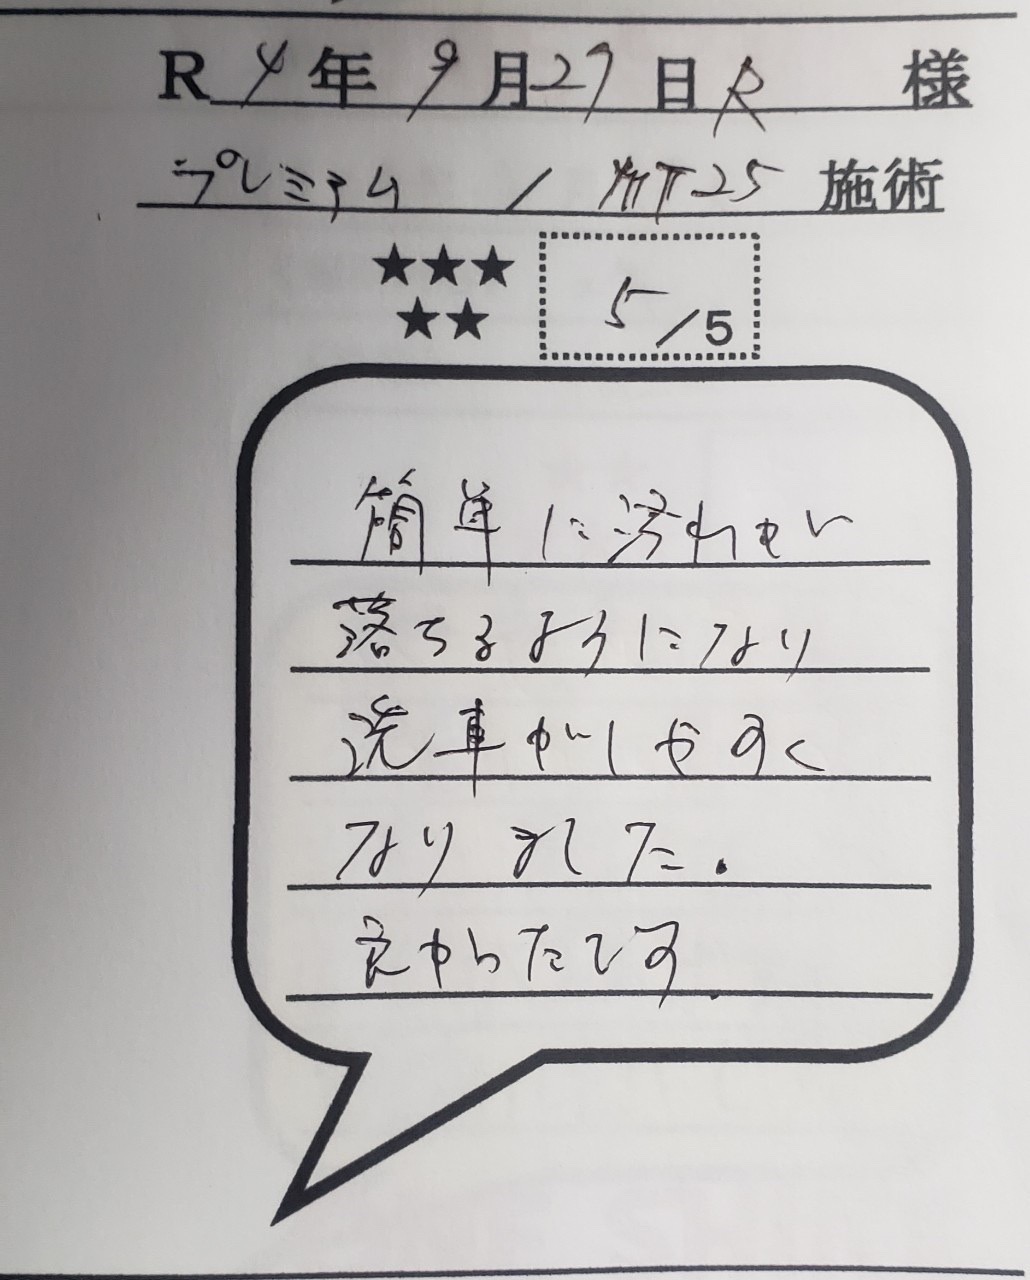 R 4年 9月27日 R 様
プレミアム / MT25 施術
★★★
★★
5/5
簡単に汚れが
落ちるようになり
洗車がしやすく
なりました.
良かったです.